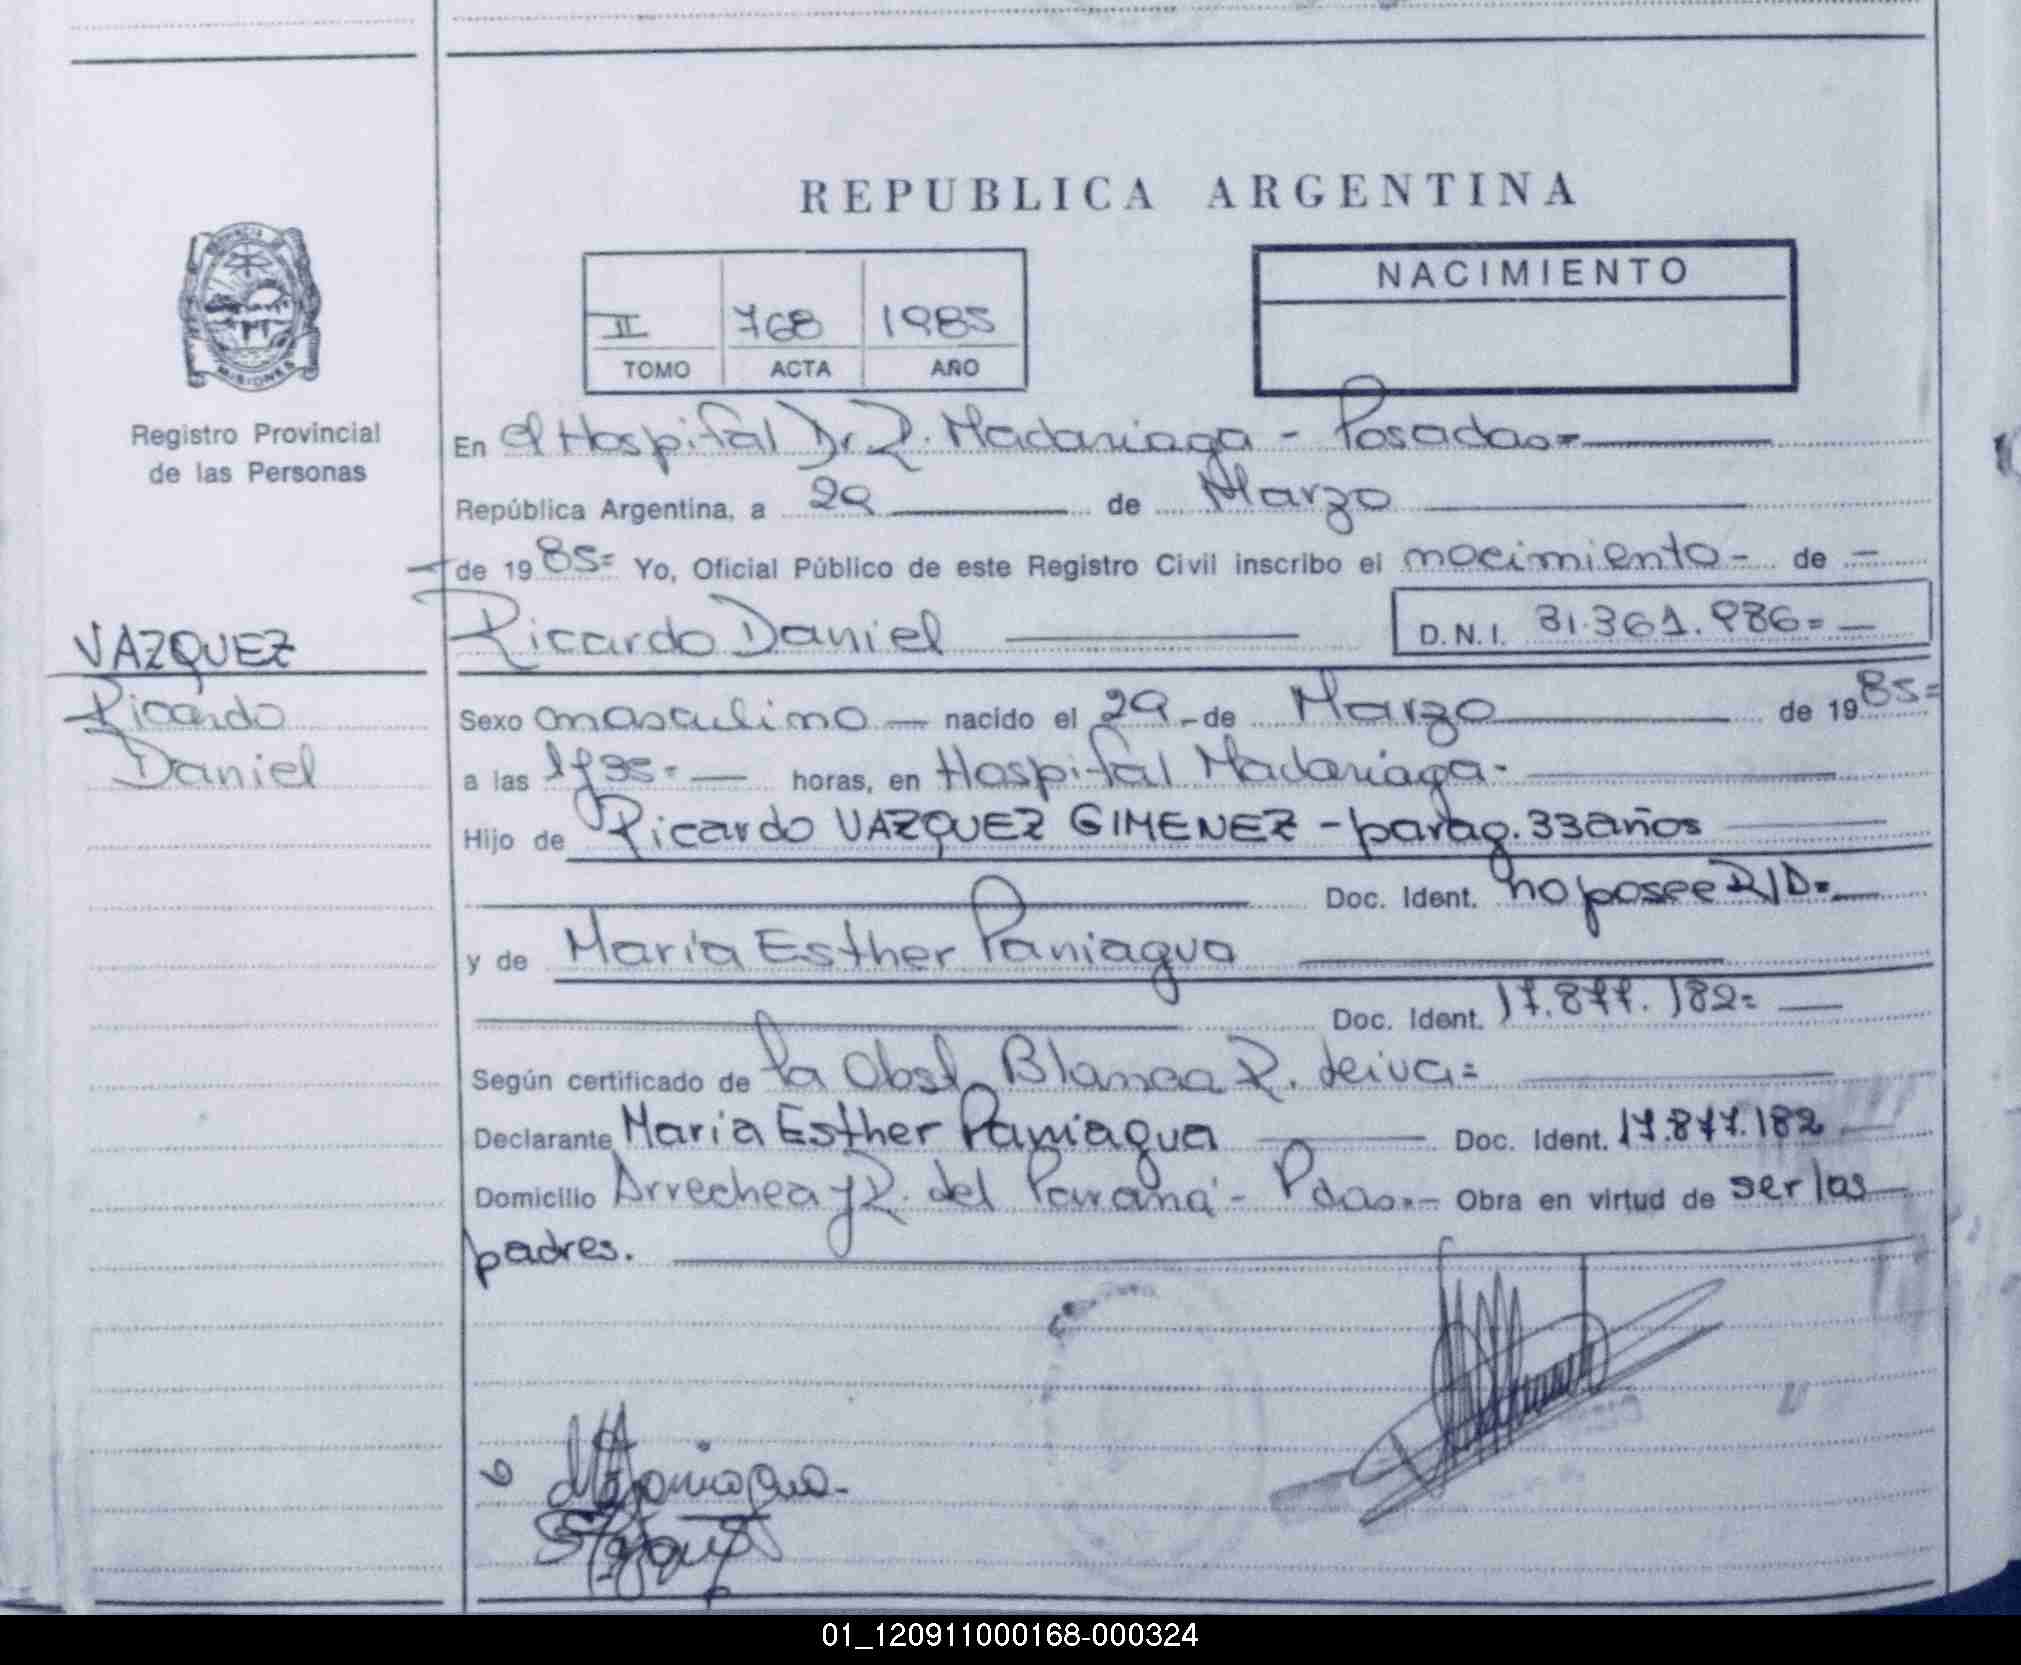 REPUBLICA ARGENTINA
PROVINCIA
MISIONES
Registro Provincial
de las Personas
NACIMIENTO
II 768 1985
TOMO ACTA AÑO
En el Hospital Dr R. Madariaga - Posadas=
República Argentina, a 29 de Marzo
de 19 85= Yo, Oficial Público de este Registro Civil inscribo el nacimiento - de -
Ricardo Daniel D.N.I. 31.361.986=
VAZQUEZ
Ricardo
Daniel
Sexo masculino nacido el 29 - de Marzo de 19 85=
a las horas, en Hospital Madariaga-
Hijo de Ricardo VAZQUEZ GIMENEZ - parag. 33 años
Doc. Ident. no posee R/D=
y de María Esther Paniagua
Doc. Ident. 17.877.182=
Según certificado de la Obst. Blanca R. deiva=
Declarante María Esther Paniagua Doc. Ident. 17.877.182
Domicilio Arrechea y R. del Paraná - Pdas.- Obra en virtud de ser los
padres.
01_120911000168-000324